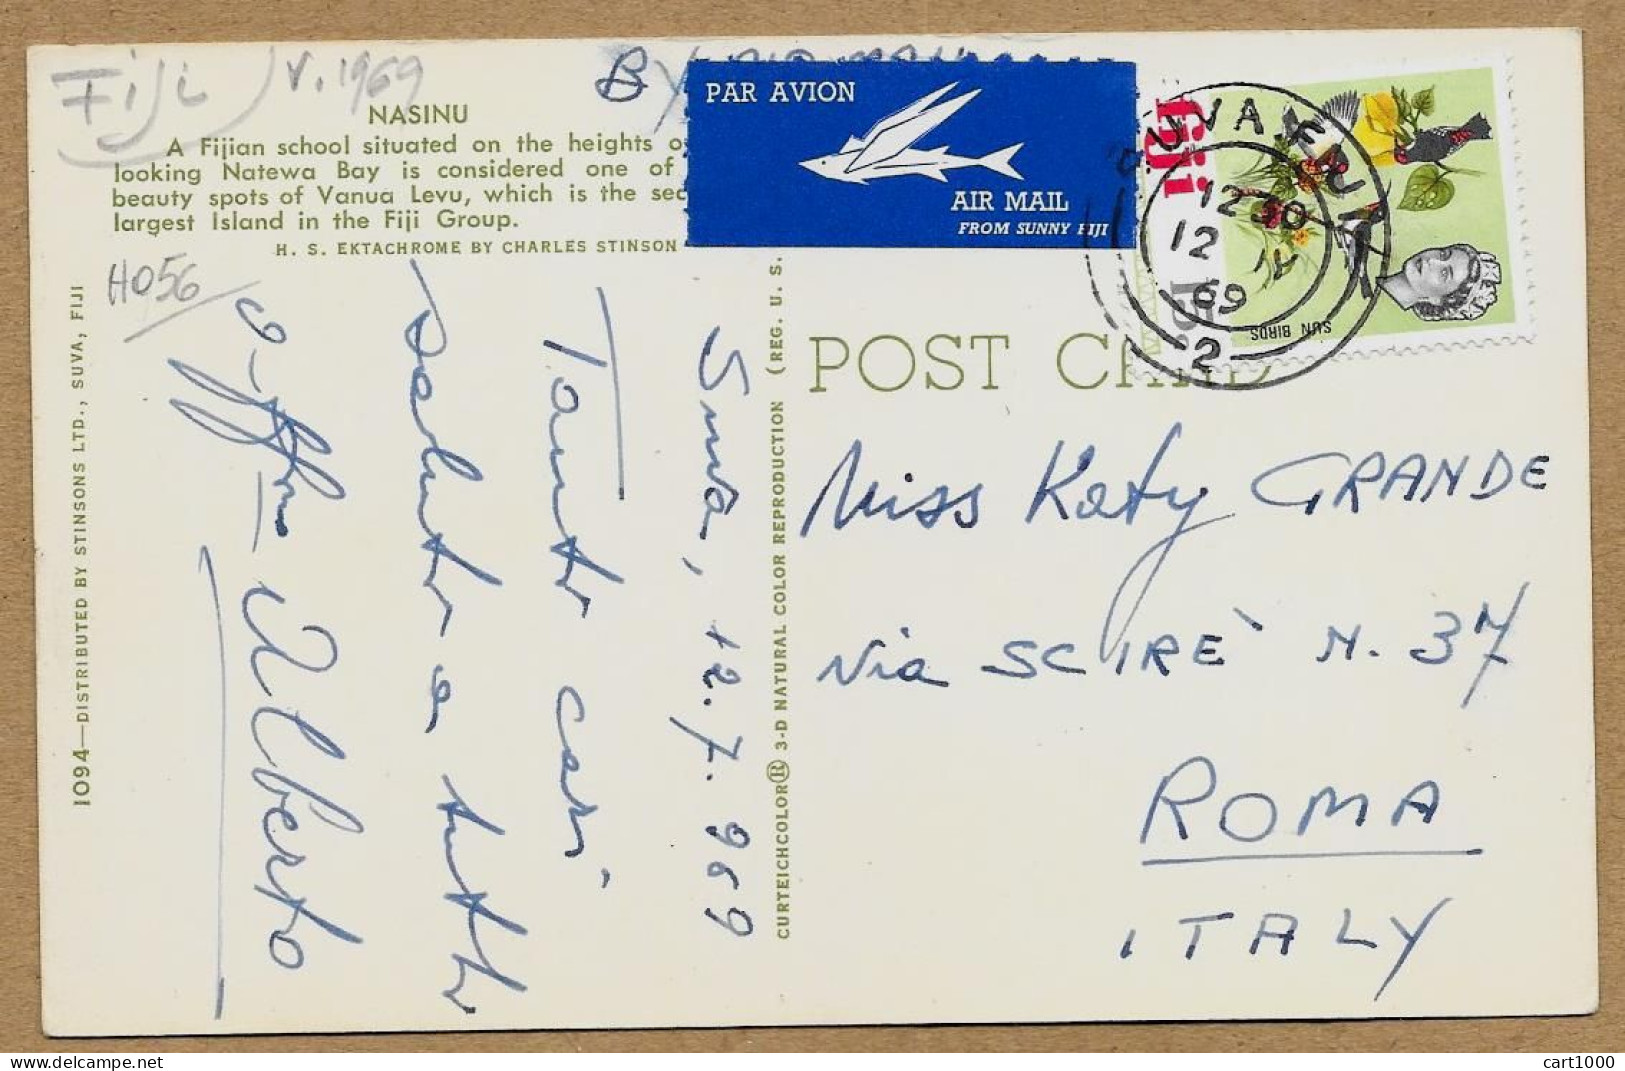 Fiji V. 1969
NASINU
A Fijian school situated on the heights o
looking Natewa Bay is considered one of
beauty spots of Vanua Levu, which is the sec
largest Island in the Fiji Group.
H. S. EKTACHROME BY CHARLES STINSON
H056
BY AIR MAIL
PAR AVION
AIR MAIL
FROM SUNNY FIJI
fiji
15c
SUN BIRDS
SUVA, FIJI
12 30
12 IV
69
2
POST CARD
Miss Katy GRANDE
Via SCIRE' N. 37
ROMA
ITALY
Suva, 12.7.969
Tanti cari
saluti a tutti
e aff.mi
Alberto
1094—DISTRIBUTED BY STINSONS LTD., SUVA, FIJI
CURTEICHCOLOR® 3-D NATURAL COLOR REPRODUCTION (REG. U. S.
cart1000